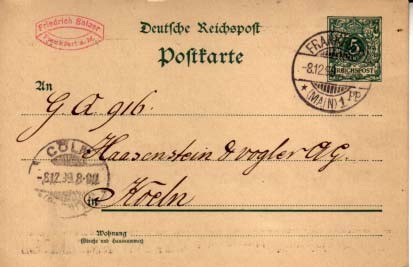 Friedrich Sälzer
Frankfurt a. M.
Deutsche Reichspost
Postkarte
FRANKF
-8.12.99
(MAIN) 1
5
REICHSPOST
An
G. A. 916.
CÖLN
-8.12.99.8-9N
Haasenstein & Vogler A.G.
in Köln
Wohnung
(Straße und Hausnummer)